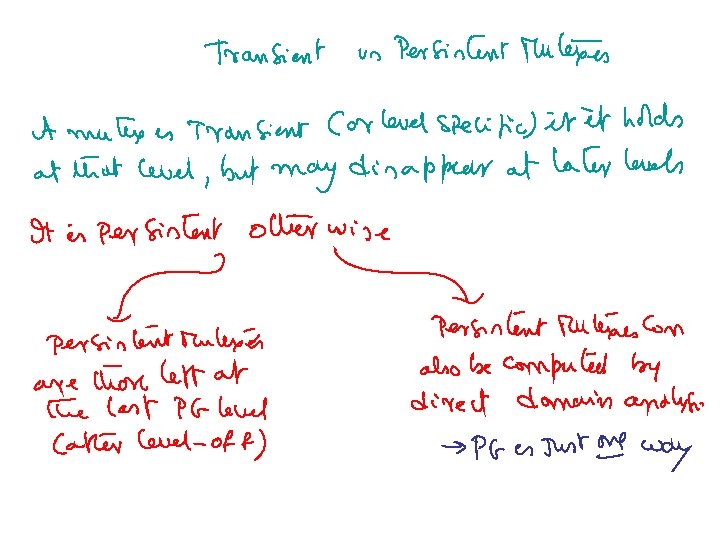 Transient vs Persistent Mutexes
A mutex is Transient (or level specific) if it holds
at that level, but may disappear at later levels
It is Persistent otherwise
Persistent Mutexes
are those left at
the last PG level
(after level-off)
Persistent Mutexes can
also be computed by
direct domain analysis
→ PG is just one way